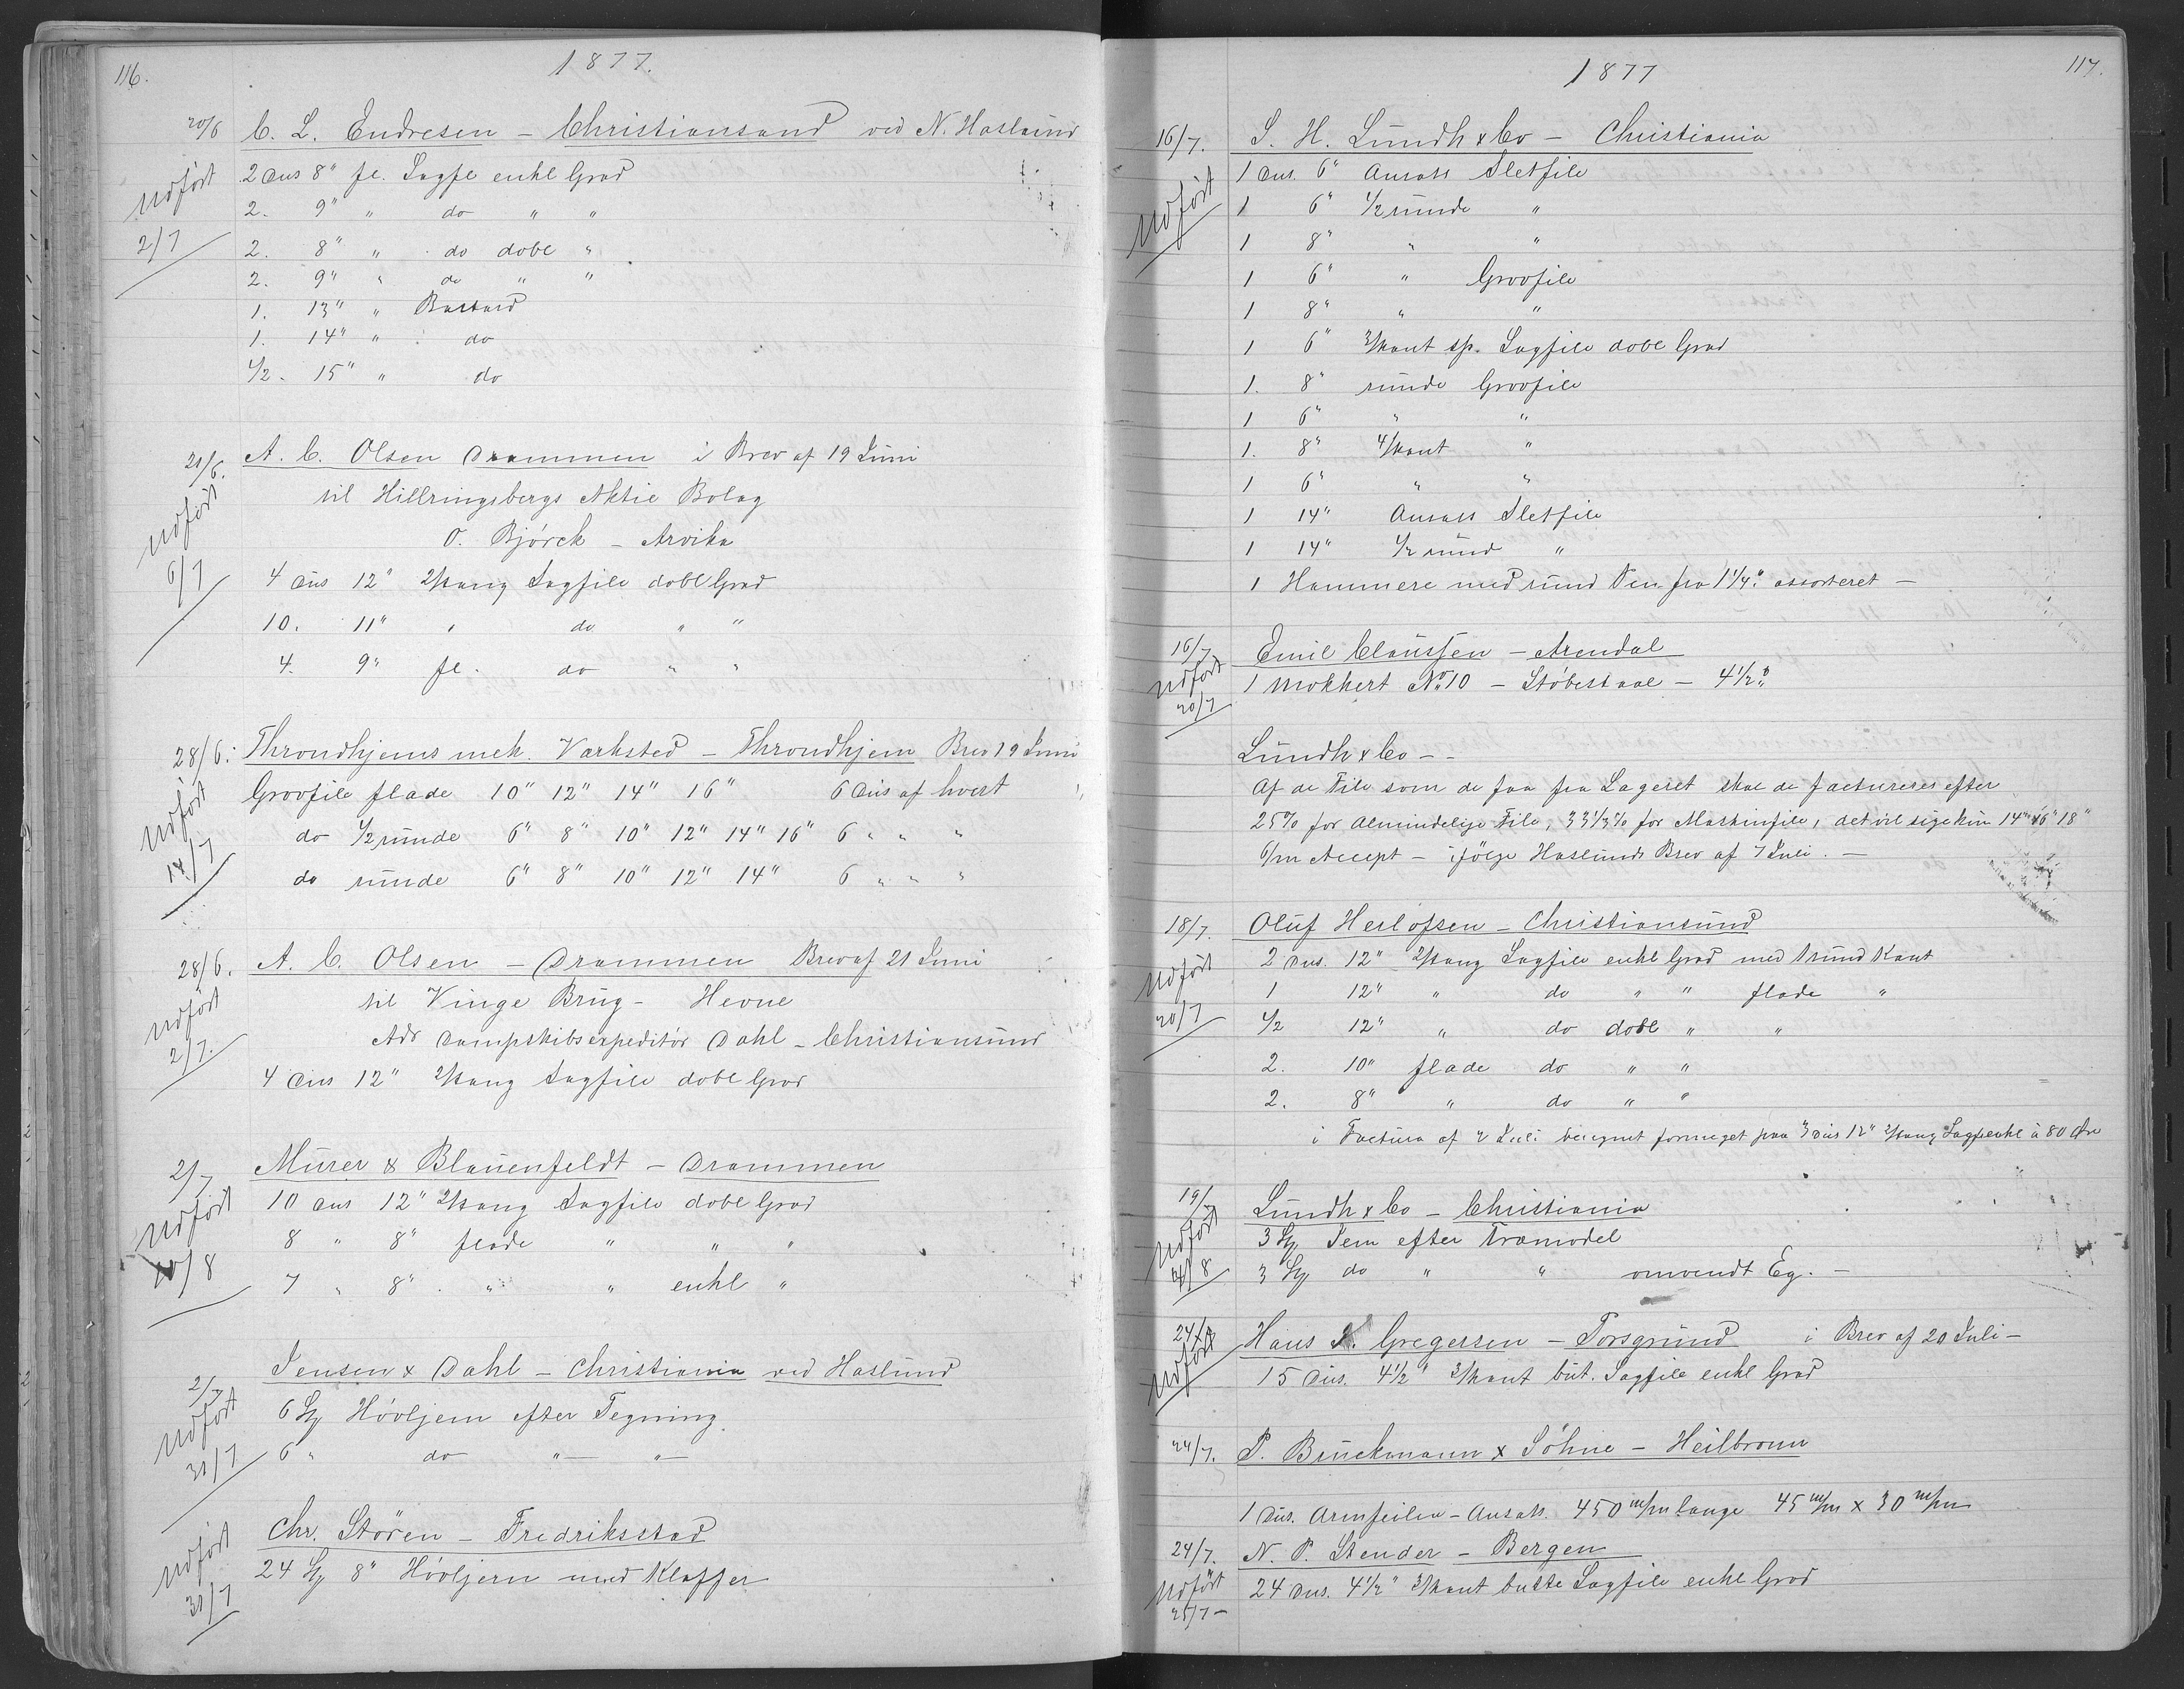 116.
1877.
20/6 C. L. Endresen - Christiansand ved N. Haslund
Udført 2 Dus 8" fl. Sagfl enkl Grad
2. 9" " do " "
2/7 2. 8" " do dobl "
2. 9" " do " "
1. 13" " Bastard
1. 14" " do
1/2. 15" " do
21/6. A. C. Olsen Drammen i Brev af 19 Juni
til Hillringsbergs Aktie Bolag
Udført O. Bjørck - Arvika
6/7 4 Dus 12" 2/kang Sagfile dobl Grad
10. 11" " do " "
4. 9" fl. do " "
28/6. Throndhjems mek. Værksted - Throndhjem Brev 19 Juni
Udført Groofile flade 10" 12" 14" 16" 6 Dus af hvert
do 1/2 runde 6" 8" 10" 12" 14" 16" 6 " " "
14/7 do runde 6" 8" 10" 12" 14" 6 " " "
28/6. A. C. Olsen - Drammen Brev af 21 Juni
Udført til Vinge Brug - Hevne
2/7. Adr Dampskibsexpeditør Dahl - Christiansund
4 Dus 12" 2/kang Sagfile dobl Grad
2/7 Murer & Blauenfeldt - Drammen
Udført 10 Dus 12" 2/kang Sagfile dobl Grad
8 " 8" flade " " "
10/8 7 " 8" " " enkl "
2/7 Jensen & Dahl - Christiania ved Haslund
Udført 6 St Høvljern efter Tegning
31/7 6 " do " - " -
Chr. Stören - Fredriksstad
Udført 24 St 8" Høvljern med Klaffer
31/7
117.
1877
16/7. S. H. Lundh & Co - Christiania
Udført 1 Dus. 6" Ansats Sletfile
1 6" 1/2 runde "
1 8" " "
1 6" " Groofile
1 8" " "
1 6" 3/kant sp. Sagfile dobl Grad
1. 8" runde Groofile
1 6" " "
1. 8" 4/kant "
1 6" " "
1 14" Ansats Sletfile
1 14" 1/2 rund "
1 Hammere med rund Pen fra 1 1/4" assorteret -
16/7 Emil Claussen - Arendal
Udført 1 Mokkert No 10 - Støbestaal - 4 1/2"
20/7
Lundh & Co - -
Af de File som de faa fra Lageret skal de factureres efter
25% for Almindelige File, 33 1/3% for Maskinfile, det vil sige kun 14" 16" 18"
6/m Accept - ifølge Haslunds Brev af 7 Juli. -
18/7. Oluf Herlofsen - Christiansund
2 Dus. 12" 2/kang Sagfile enkl Grad med 1 rund Kant
Udført 1 12" " do " " flade "
20/7 1/2 12" " do dobl " "
2. 10" flade do " "
2. 8" " do " "
i Factura af 2 Juli beregnet formeget paa 3 Dus 12" 2/kang Sagfl enkl à 80 Øre
19/7 Lundh & Co - Christiania
Udført 3 St Jern efter Træmodel
3 St do " " omvendt Eg. -
24/7 Hans Gregersen - Porsgrund i Brev af 20 Juli -
Udført 15 Dus. 4 1/2" 3/kant but. Sagfile enkl Grad
24/7. P. Bruckmann & Söhne - Heilbronn
1 Dus. Armfeilen - Ansats. 450 m/m lange 45 m/m x 30 m/m
24/7. N. P. Stender - Bergen
Udført 24 Dus. 4 1/2" 3/kant butte Sagfile enkl Grad
25/7 -